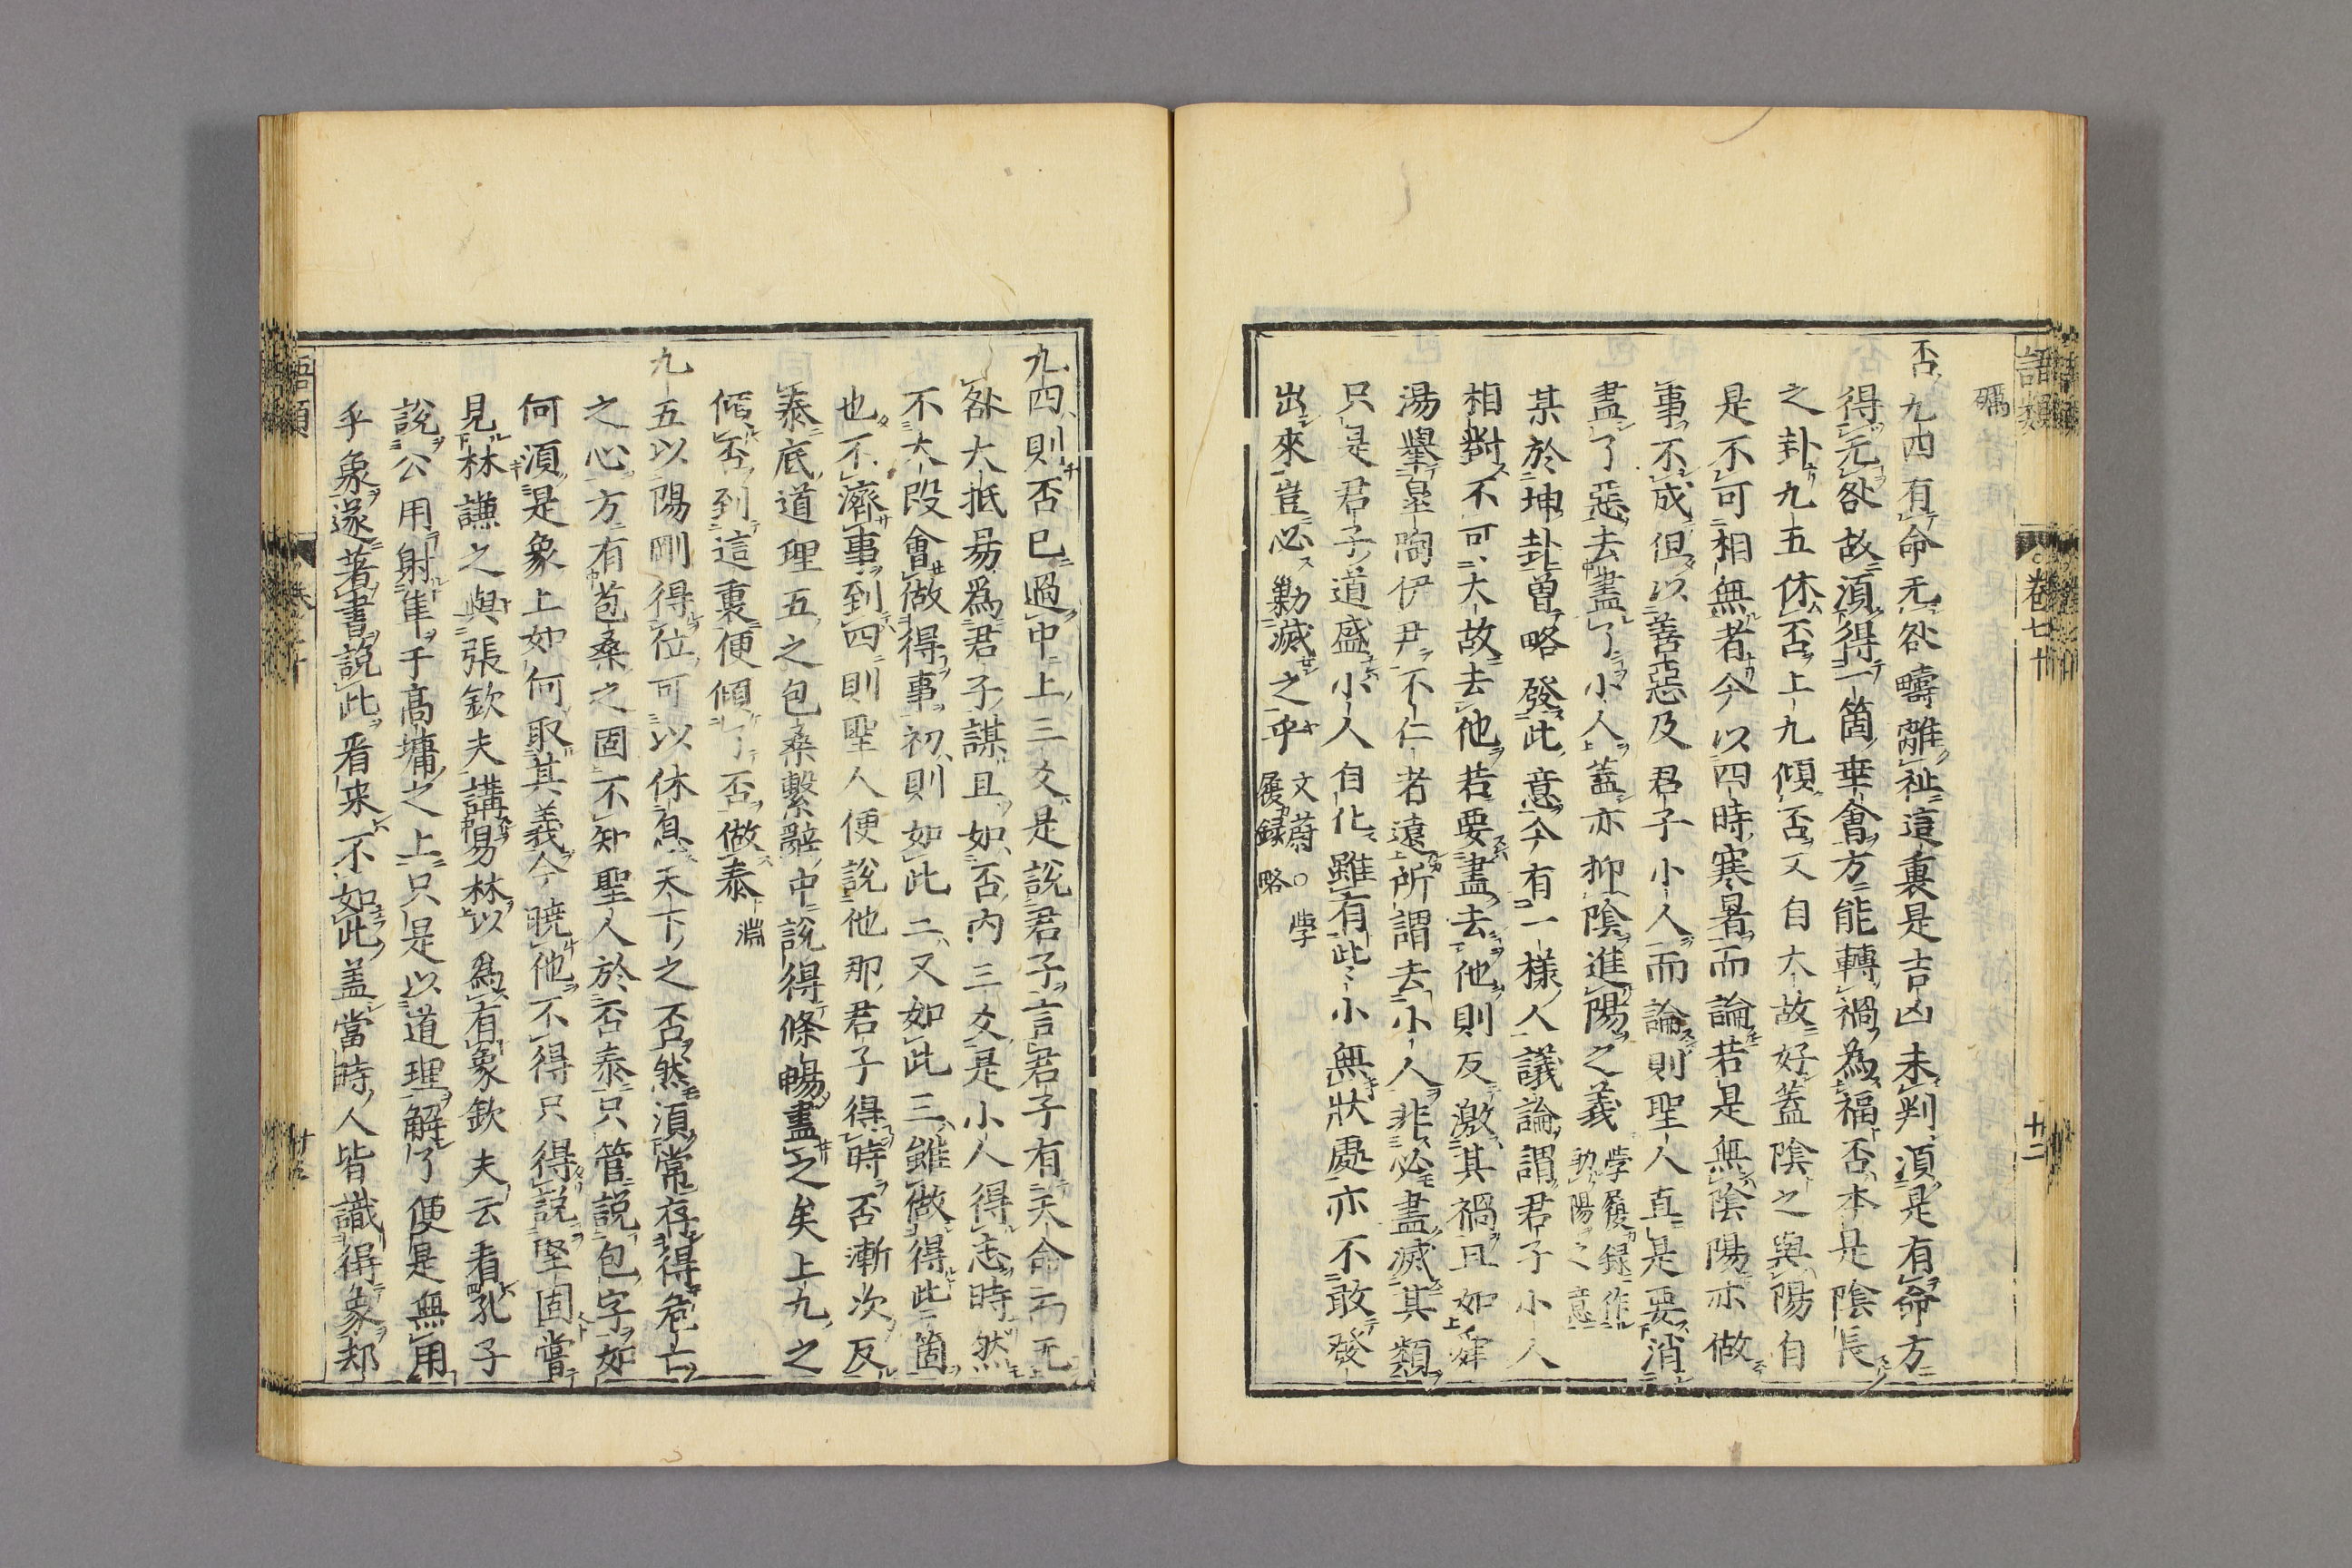 語類
卷七十
廿二
礪
否九四有命无咎疇離祉這裏是吉凶未判須是有命方
得无咎故須得一箇幸會方能轉禍為福否本是陰長
之卦九五休否上九傾否又自大故好蓋陰之與陽自
是不可相無者今以四時寒暑而論若是無陰陽亦做
事不成但以善惡及君子小人而論則聖人直是要消
盡了惡去盡了小人蓋亦抑陰進陽之義學履録作
助陽之意
某於坤卦曽略發此意今有一樣人議論謂君子小人
相對不可大故去他若要盡去他則反激其禍且如舜
湯舉皐陶伊尹不仁者遠所謂去小人非必盡滅其類
只是君子道盛小人自化雖有此〻小無狀處亦不敢發
出來豈必勦滅之乎文蔚○學
履録略
九四則否已過中上三爻是說君子言君子有天命而无
咎大抵易爲君子謀且如否內三爻是小人得志時然
不大段會做得事初則如此二又如此三雖做得此二箇
也不濟事到四則聖人便說他那君子得時否漸次反
泰底道理五之包桑繫辭中說得條暢盡之矣上九之
傾否到這裏便傾了否做泰淵
九五以陽剛得位可以休息天下之否然須常存得危亡
之心方有苞桑之固不知聖人於否泰只管說包字如
何須是象上如何取其義今曉他不得只得說堅固嘗
見林謙之與張欽夫講易林以爲有象欽夫云看孔子
說公用射隼于高墉之上只是以道理解了便是無用
乎象遂著書說此看来不如此蓋當時人皆識得象却
語類